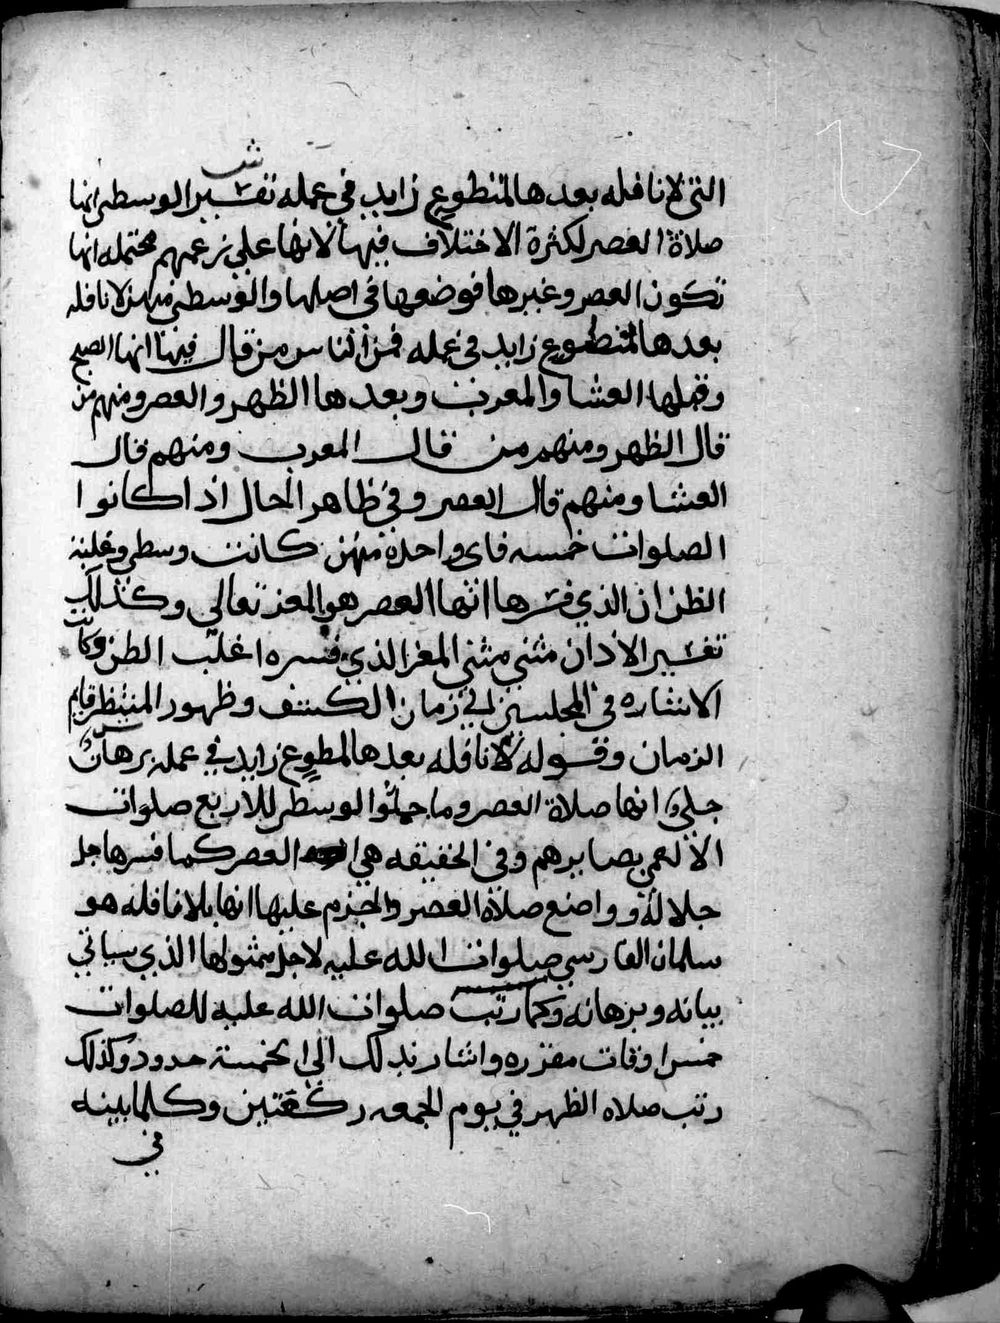 التي لا نافله بعدها لمتطوع زايد في عمله تفسير الوسطى انها
صلاة العصر لكثرة الاختلاف فيها لانها على زعمهم محتمله انها
تكون العصر وغيرها فوضعها في اصلها والوسطى منهن لا نافله
بعدها لمتطوع زايد في عمله فمن الناس من قال فيها انها الصبح
وقبلها العشا والمغرب وبعدها الظهر والعصر ومنهم من
قال الظهر ومنهم من قال المغرب ومنهم قال
العشا ومنهم قال العصر وفي ظاهر الحال اذا كانوا
الصلوات خمسه فاي واحدة منهن كانت وسطى وغلبة
الظن ان الذي فسرها انها العصر هو المعز تعالي وكذلك
تفسير الاذان مثني مثني المعز الذي فسره اغلب الظن وكانت
الاشاره في المجلسين الي زمان الكشف وظهور المنتظر قايم
الزمان وقوله لا نافله بعدها لمطوع زايد في عمله برهان
جلي انها صلاة العصر وما جعلوا الوسطى للاربع صلوات
الا لعمي بصايرهم وفي الحقيقه هي العصر كما فسرها جل
جلاله وواضع صلاة العصر والجزم عليها انها بلا نافله هو
سلمان الفارسي صلوات الله عليه لاجل مثولها الذي سياتي
بيانه وبرهانه وكما رتب صلوات الله عليه للصلوات
خمس اوقات مقرره واشار بذلك الي الخمسة حدود وكذلك
رتب صلاه الظهر في يوم الجمعه ركعتين وكلما بينه
في